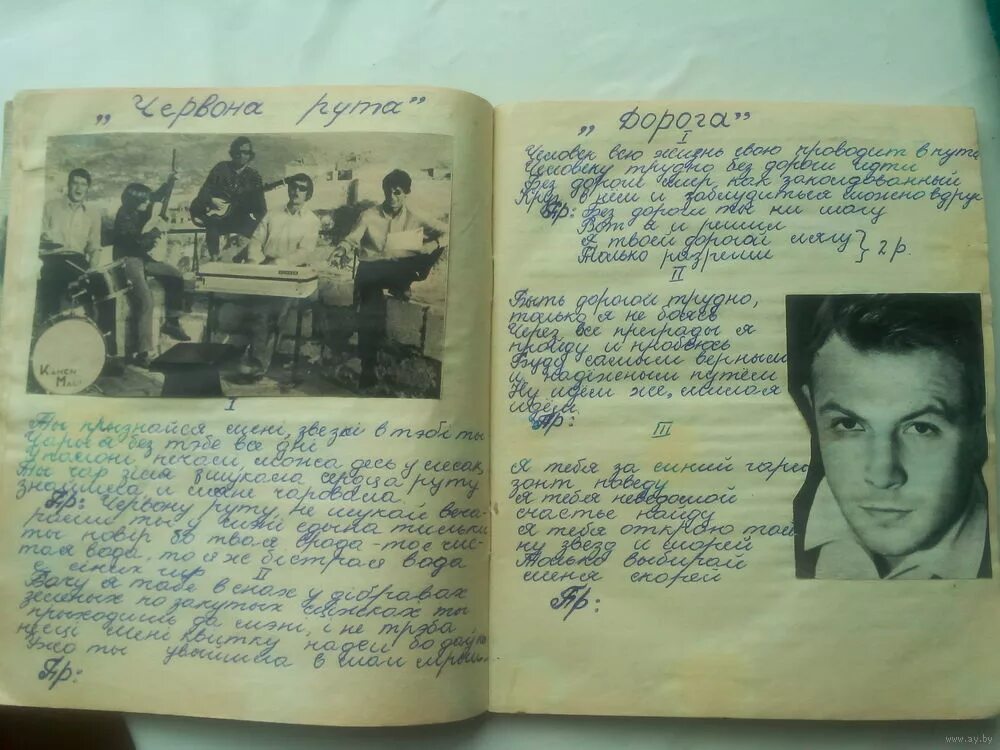 „Червона рута”
Камен
Мак
I
Ты прызнайся мені, звезкй в тэбі ты
Чары я без тэбе все дні
у полоні печалі, можа десь у лесах,
Ты чар зілля шукала сердца руту
знайшла и мяне чаровала.
Пр: Червону руту, не шукай веча-
рами ты у мэні едына тильки
ты повір бо твоя врода - то є чис-
тая вода, то я же бістрая вода
с синих гор
II
Бачу я тэбе в снах у дібравах
зеленых по закутых стэжках ты
прыходишь да мэні, і не трэба
несці мені квитку надеи бо даўно
Ужо ты увыйшла в маи мрыи.
Пр:
„Дорога”
I
Человек всю жизнь свою проводит в пути
Человеку трудно без дороги идти
Без дороги мир как заколдованный
Круг, в нем и заблудиться можно вдруг
Пр: Без дороги ты ни шагу
Вот я и решил
Я твоей дорогой лягу } 2 р.
Только разреши
II
Быть дорогой трудно,
только я не боюсь
Через все преграды я
пройду и пробьюсь
Буду самым верным
и надёжным путём
Ну идём же, милая
идём.
Пр:
III
Я тебя за синий гори
зонт поведу
Я тебя неведомой
счастье найду
Я тебя открою тай
ну звёзд и морей
Только выбирай
меня скорей
Пр:
www.ay.by